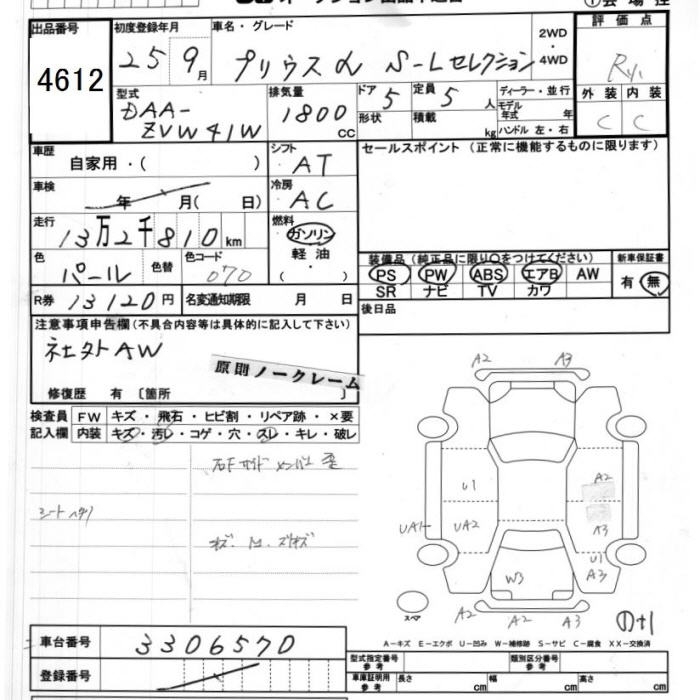 出品番号 初度登録年月 車名・グレード 2WD・4WD 評価点
4612
25 9月 プリウスα S-Lセレクション
R
外装 内装
C C
型式 DAA-ZVW41W
排気量 1800 cc
ドア 5 定員 5 人
形状 積載 kg
ディーラー・並行
モデル年式 年
ハンドル 左・右
車歴 自家用・( )
シフト AT
セールスポイント(正常に機能するものに限ります)
車検 年 月( 日)
冷房 AC
走行 13万2千810km
燃料 ガソリン
軽油
色 パール 色替 色コード 070
装備品(純正品に限り○をつけてください) 新車保証書
PS PW ABS エアB AW
SR ナビ TV カワ
有・無
R券 13120円 名変通知期限 月 日
後日品
注意事項申告欄(不具合内容等は具体的に記入して下さい)
社外AW
原則ノークレーム
修復歴 有 〔箇所 〕
検査員記入欄
FW キズ・飛石・ヒビ割・リペア跡・×要
内装 キズ・汚レ・コゲ・穴・スレ・キレ・破レ
シートヘタリ
A2 A3
U1 A2
UA1 UA2 A3
U1
W3 A3
スペア A2 A2 A3
A-キズ E-エクボ U-凹み W-補修跡 S-サビ C-腐食 XX-交換済
車台番号 3306570
登録番号
型式指定番号 参考 類別区分番号 参考
車庫証明用 参考 長さ cm 幅 cm 高さ cm